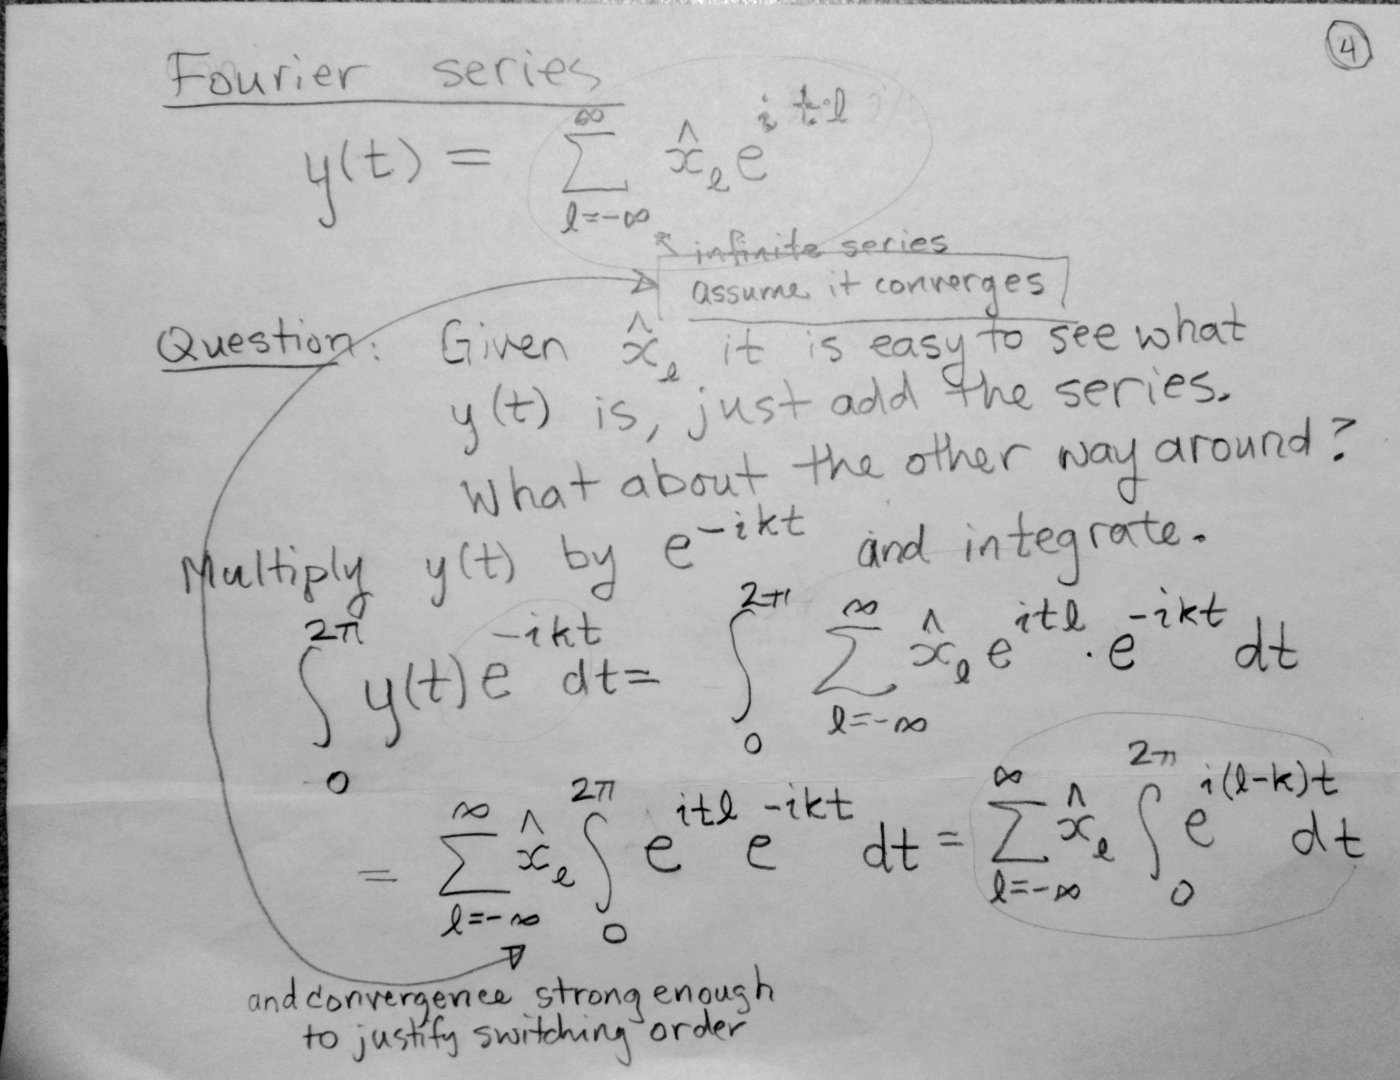 ④
Fourier series
y(t) = ∑_{l=-∞}^{∞} x̂_l e^{it·l}
infinite series
assume it converges
Question: Given x̂_l it is easy to see what
y(t) is, just add the series.
What about the other way around?
Multiply y(t) by e^{-ikt} and integrate.
∫_0^{2π} y(t) e^{-ikt} dt = ∫_0^{2π} ∑_{l=-∞}^{∞} x̂_l e^{itl} · e^{-ikt} dt
= ∑_{l=-∞}^{∞} x̂_l ∫_0^{2π} e^{itl} e^{-ikt} dt = ∑_{l=-∞}^{∞} x̂_l ∫_0^{2π} e^{i(l-k)t} dt
and convergence strong enough
to justify switching order